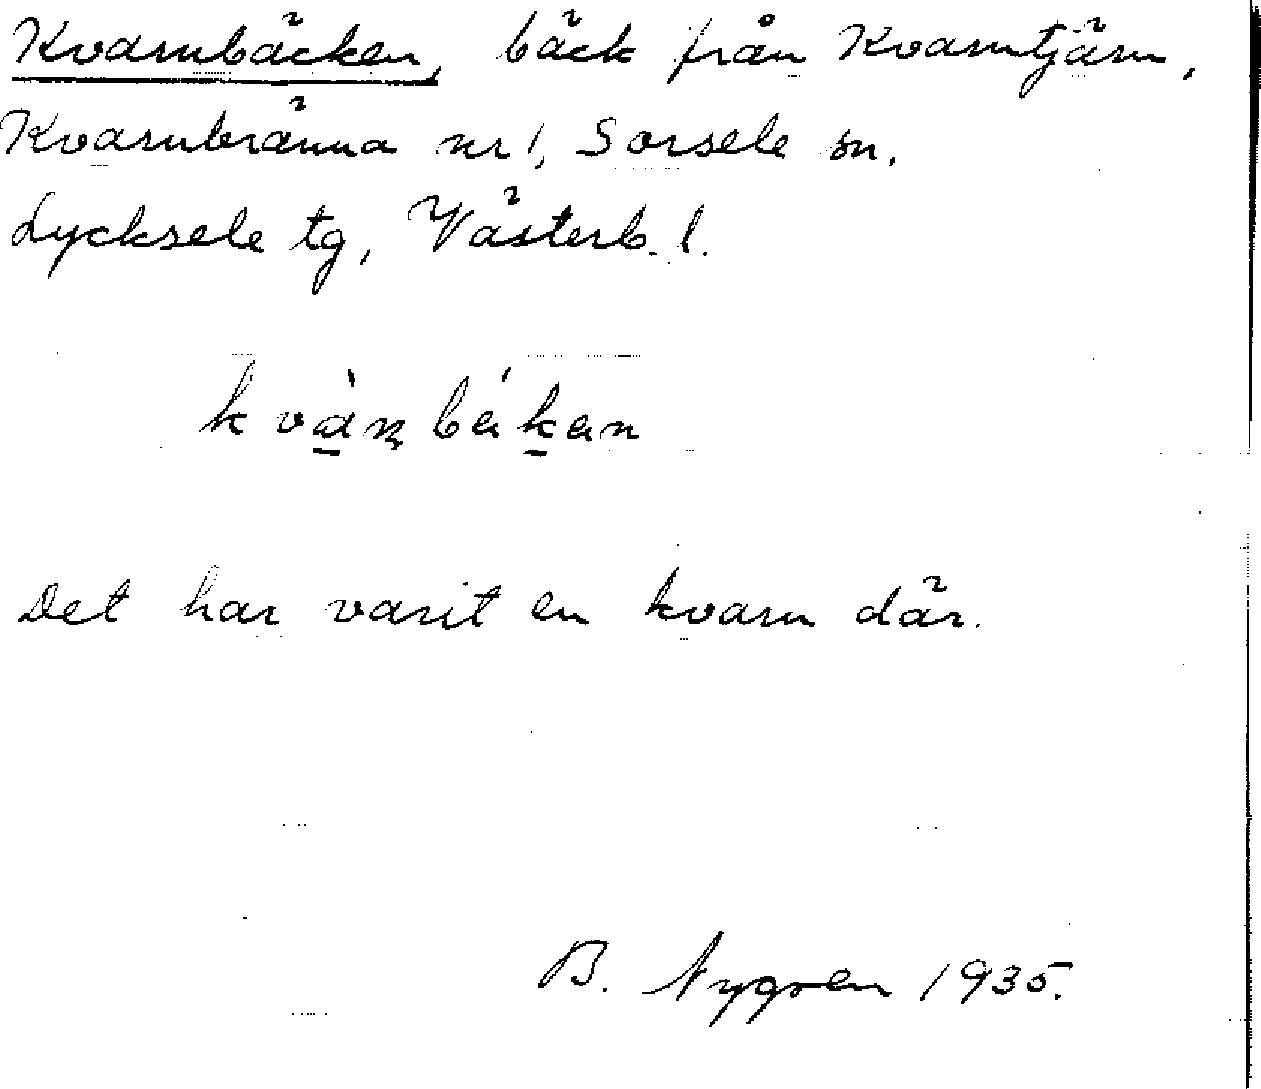 Kvarnbäcken, bäck från Kvarntjärn,
Kvarnbränna nr 1, Sorsele sn.
Lycksele tg, Västerb. l.
Det har varit en kvarn där.
B. Nygren 1935.